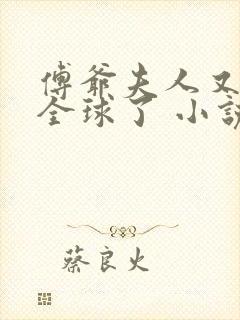 傅爺夫人又
全球了 小說
蔡良火